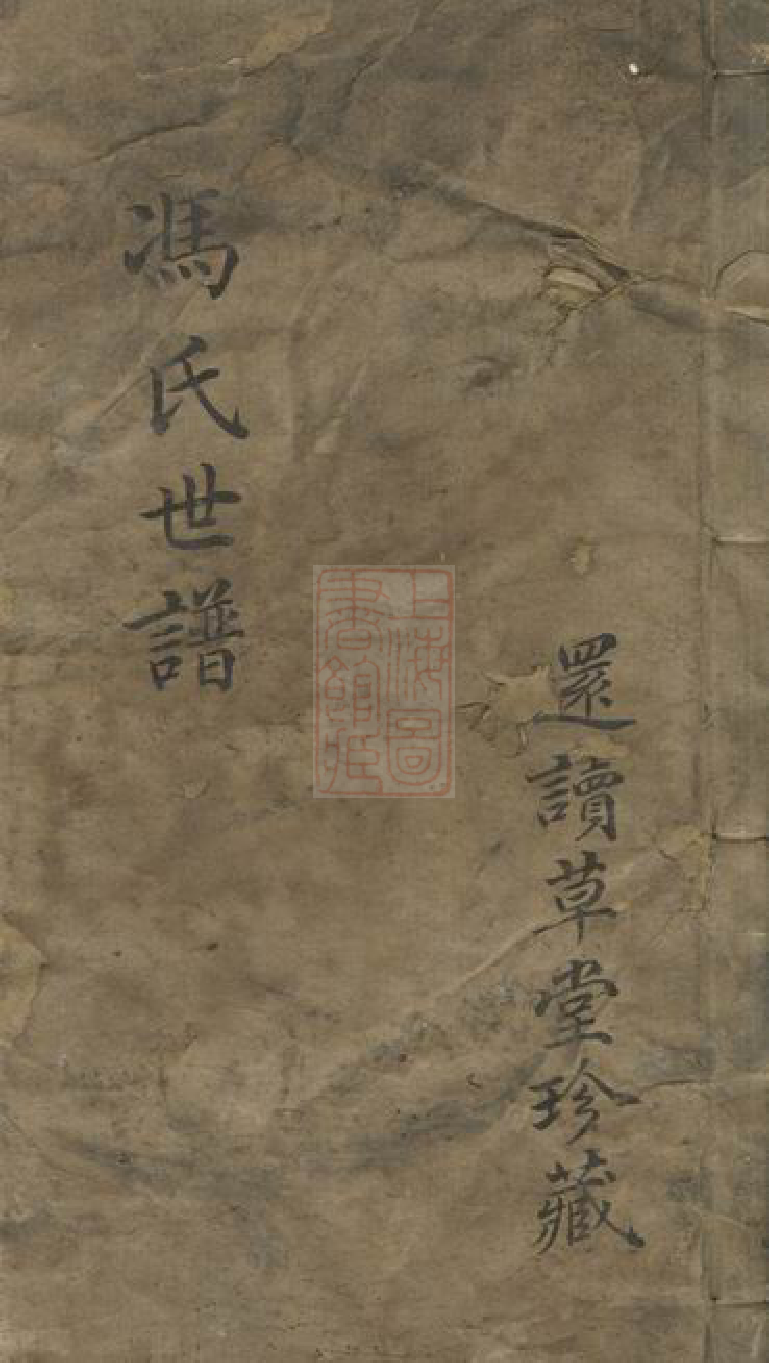 還讀草堂珍藏
馮氏世譜
上海圖
書館藏